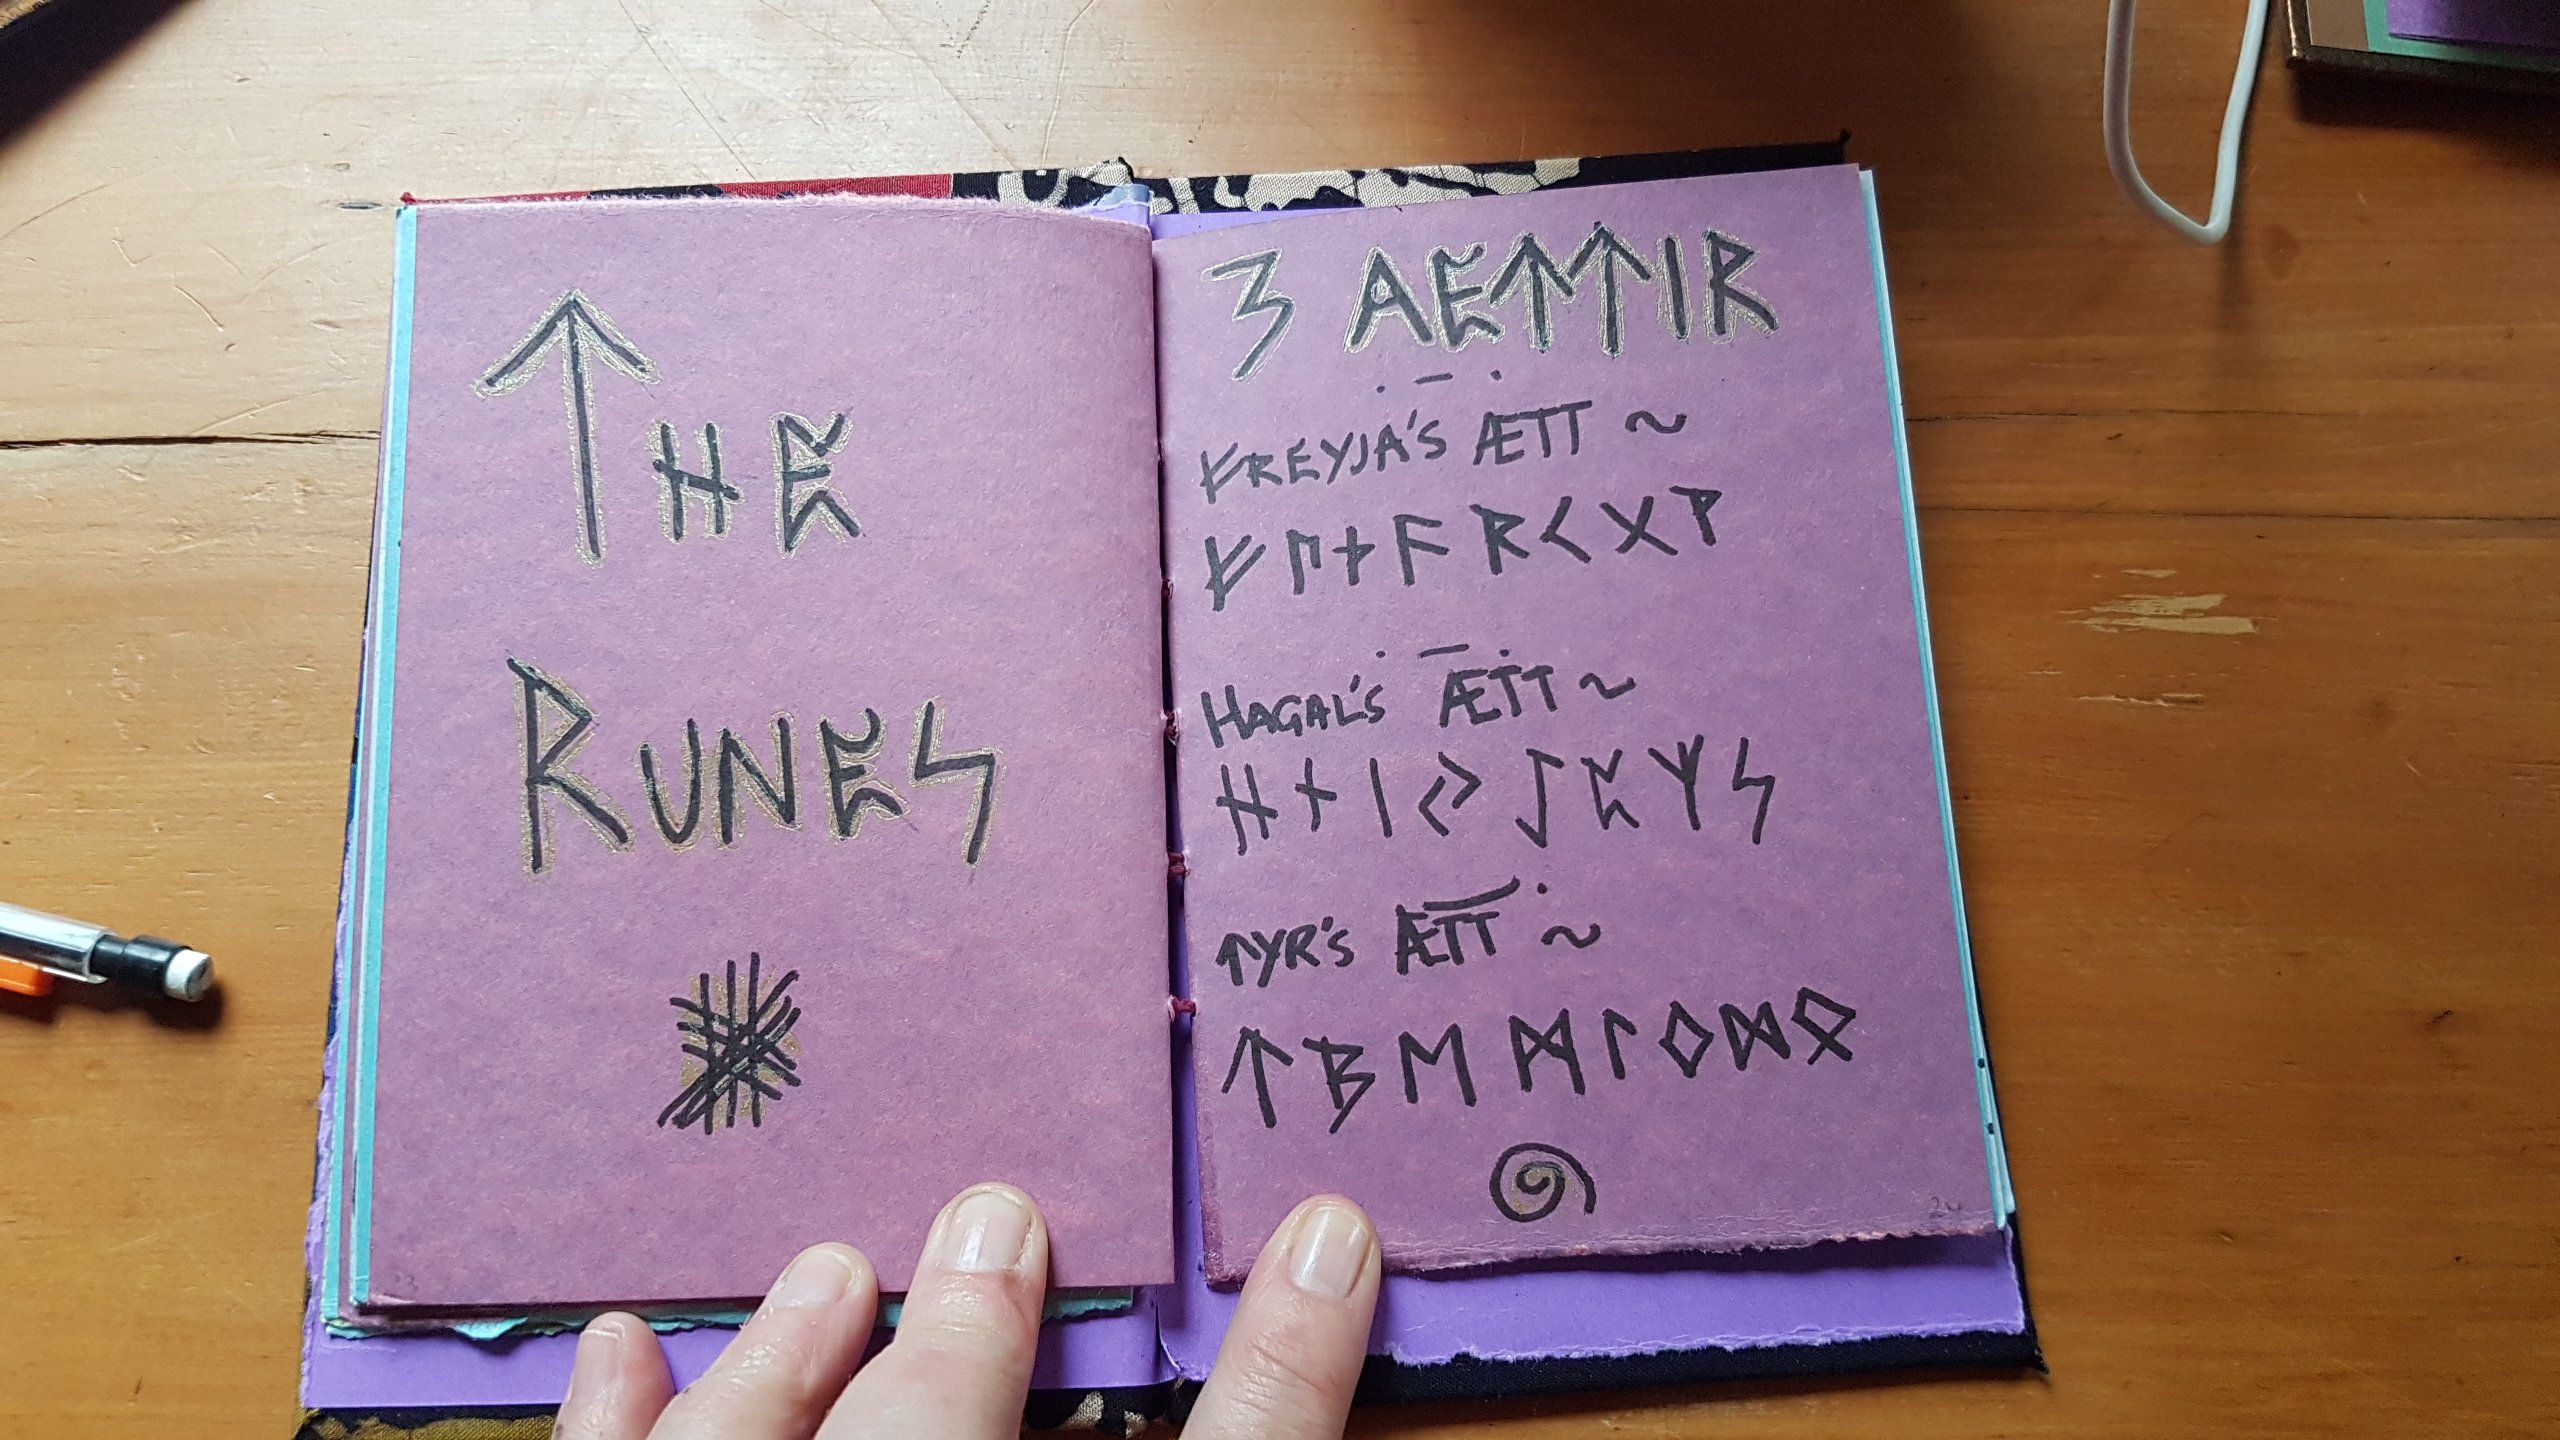 THE
RUNES
3 AETTIR
FREYJA'S ÆTT ~
ᚠ ᚢ ᚦ ᚨ ᚱ ᚲ ᚷ ᚹ
HAGAL'S ÆTT ~
ᚺ ᚾ ᛁ ᛃ ᛇ ᛈ ᛉ ᛋ
TYR'S ÆTT ~
ᛏ ᛒ E ᛗ ᛚ ᛜ ᛞ ᛟ